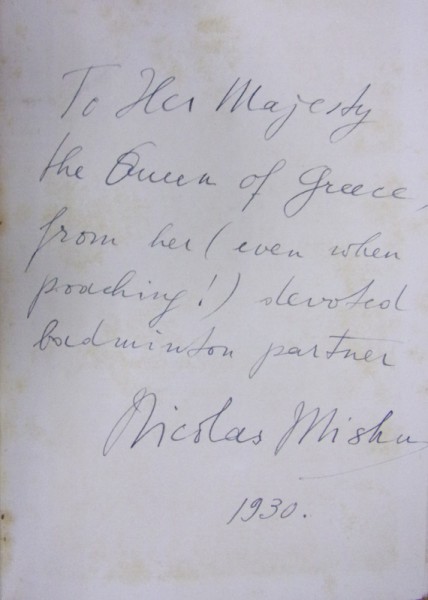 To Her Majesty
the Queen of Greece,
from her (even when
poaching!) devoted
badminton partner
Nicolas Mishu
1930.